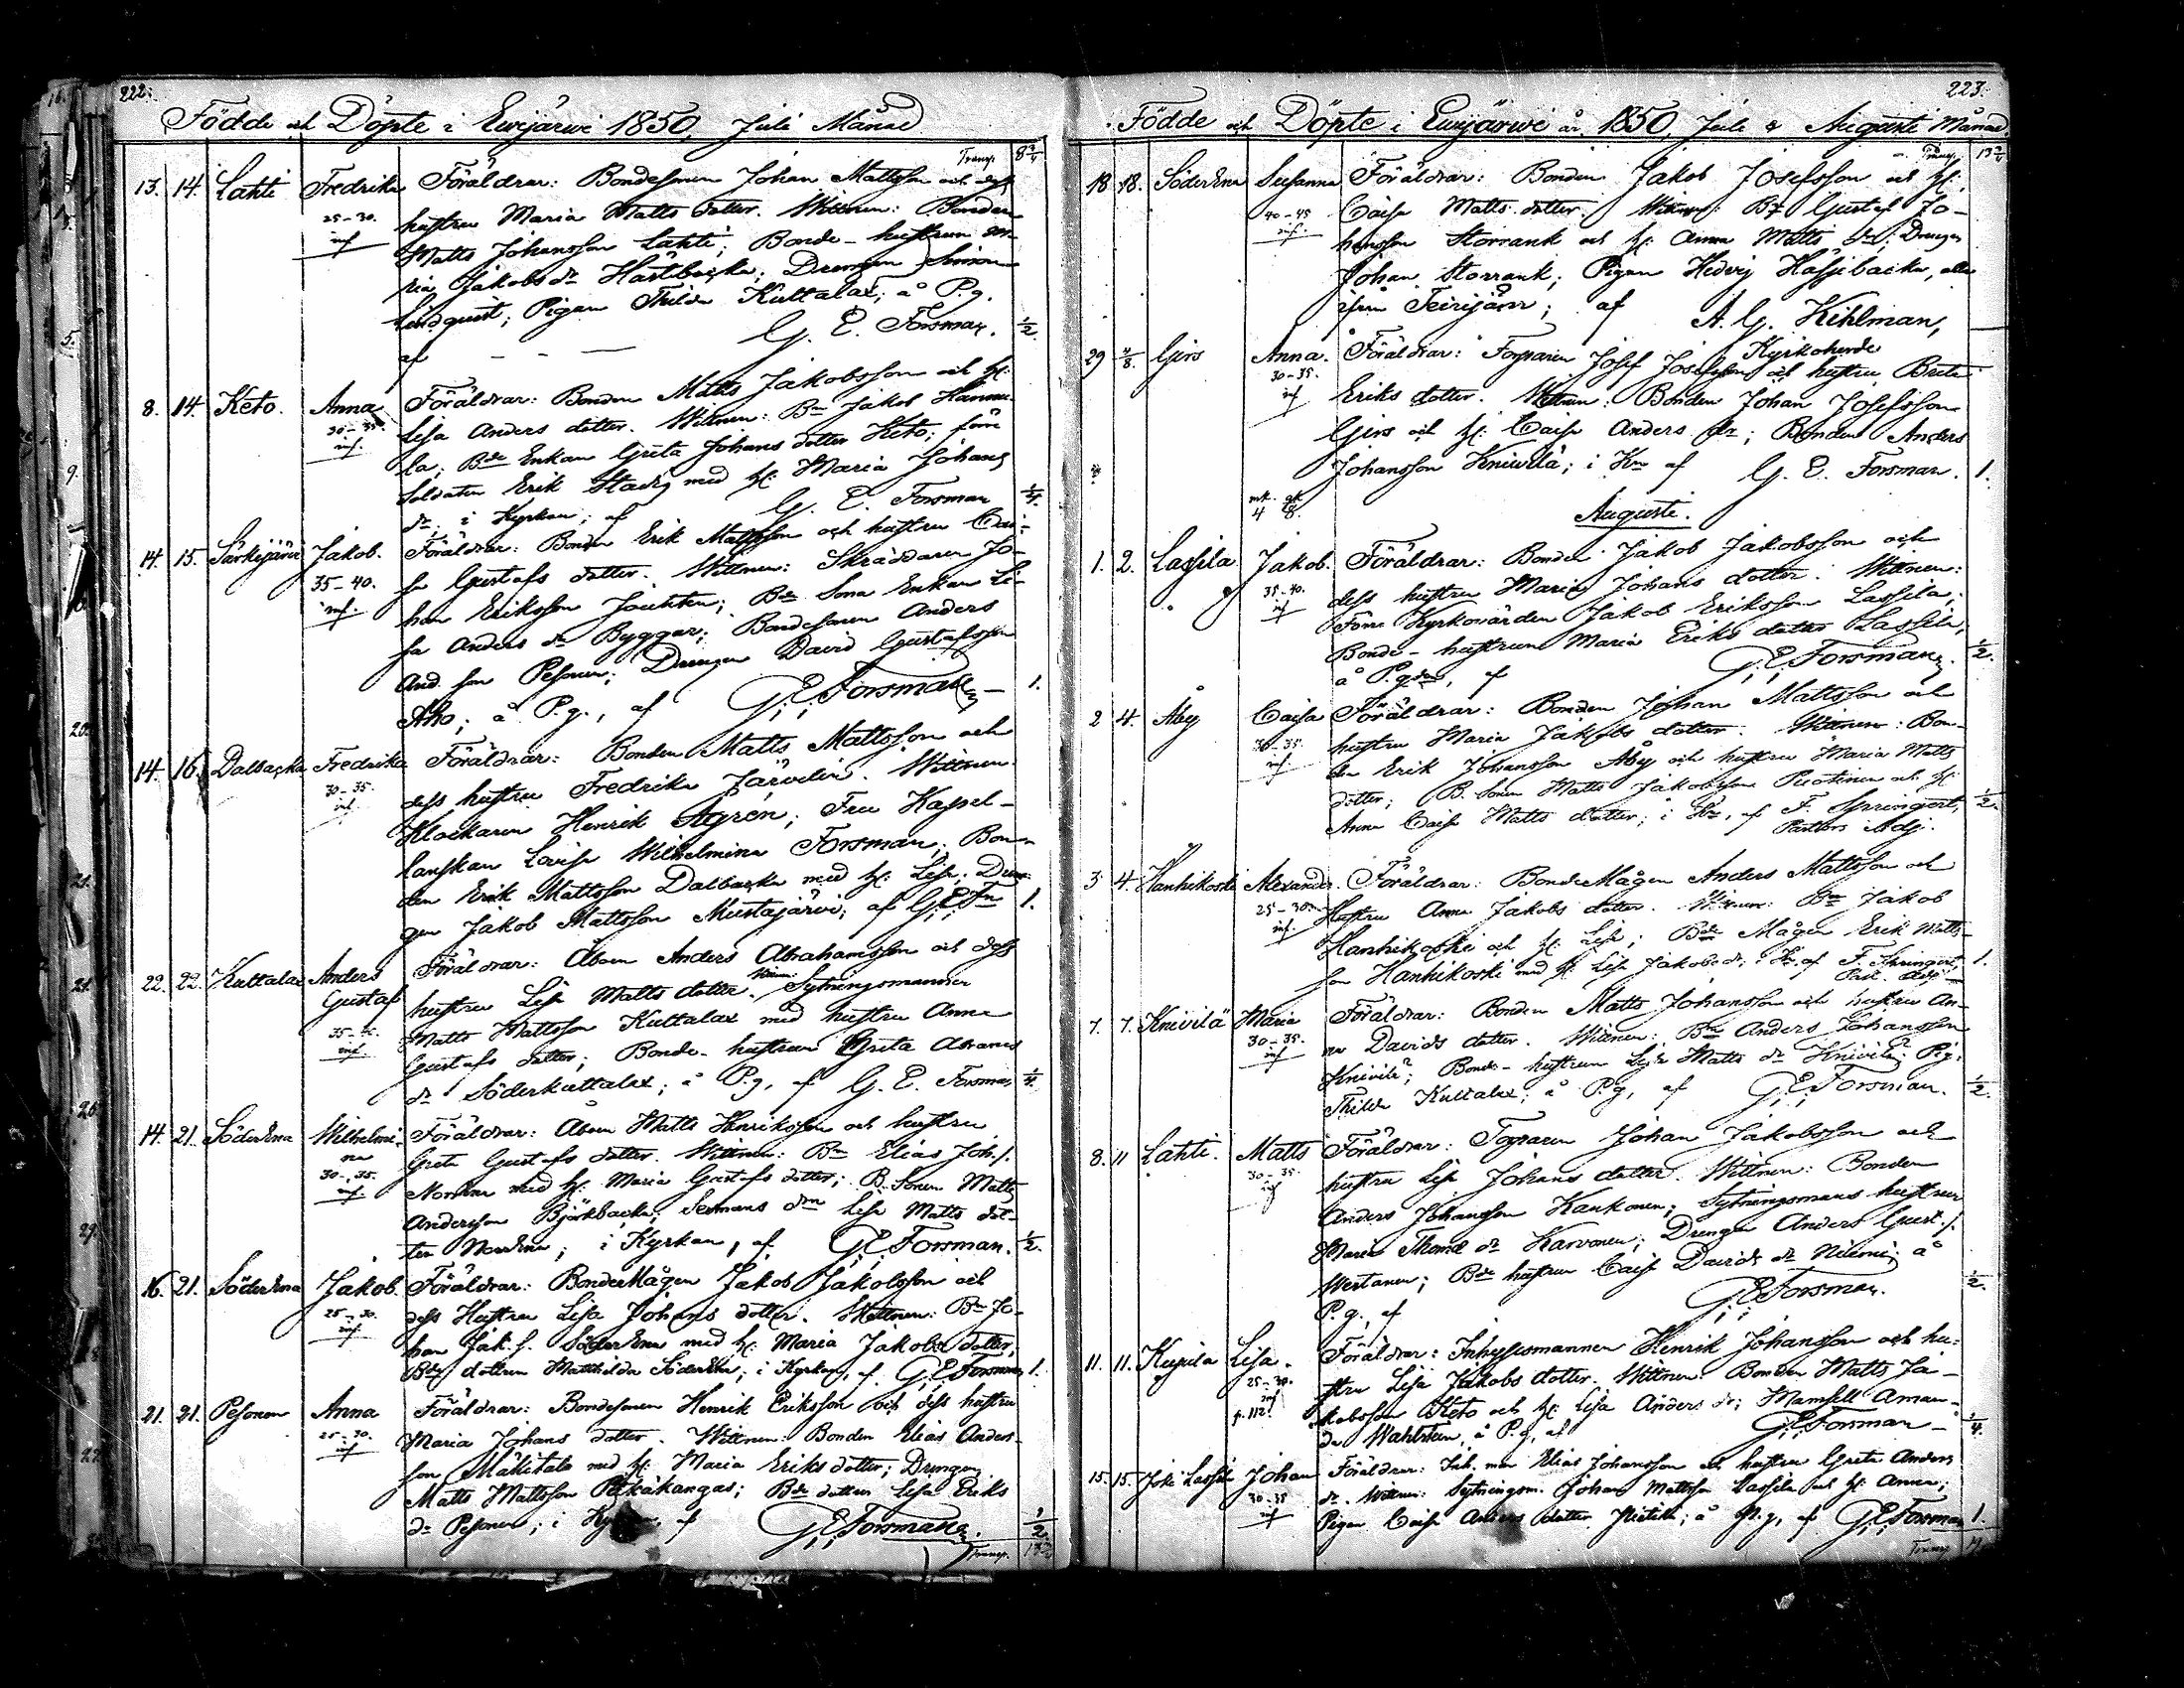 222.
Födde och Döpte i Ewijärwi 1850. Juli Månad
Transp. 8 3/4
13. 14. Lahti Fredrika Föräldrar: Bondesonen Johan Mattsson och dess
25-30. hustru Maria Matts dotter. Wittnen: Bonden
inf Matts Johansson Lahti; Bonde-hustrun Ma-
ria Jakobs dr Hästbacka; Drengen Simon
Lindquist; Pigan Thilda Kuttalax; å P.g.
af — — — G. E. Forsman. 1/2
8. 14. Keto. Anna Föräldrar: Bonden Matts Jakobsson och h:
30-35. Lisa Anders dotter. Wittnen: Bn Jakob
inf. la; Bde Enkan Greta Johans dotter Keto; förre
Soldaten Erik Stadig med h: Maria Johans
dr. i Kyrkan; af G. E. Forsman 1/4.
14. 15. Särkijärvi Jakob. Föräldrar: Bonden Erik Mattsson och hustru Cai-
35-40. sa Gustafs dotter. Wittnen: Skräddaren Jo-
inf. han Eriksson; Bde Sona Enkan Li-
sa Anders dr Byggar; Bondesonen Anders
And. son Pesonen; Drengen David Gustafsson
Aho; å P.g., af G. E. Forsman 1.
14. 16. Dalbacka Fredrika Föräldrar: Bonden Matts Mattsson och
30-35. dess hustru Fredrika Järvelin. Wittnen
inf. Klockaren Henrik Ågrén; Fru Kapel-
lanskan Lovisa Wilhelmina Forsman; Bon-
den Erik Mattsson Dalbacka med h: Lisa; Dren-
gen Jakob Mattsson Mustajärvi; af G. E. Fn 1.
22. 22. Kuttalax Anders Föräldrar: Åboen Anders Abrahamsson och dess
Gustaf hustru Lisa Matts dotter. Wittnen: Sytningsmannen
35-40. Matts Mattsson Kuttalax med hustru Anna
inf Gustafs dotter; Bonde-hustrun Greta Abrams
dr Söderkuttalax; å P.g., af G. E. Forsman 1/4
14. 21. SöderEna Wilhelmi- Föräldrar: Åboen Matts Henriksson och hustru
na Greta Gustafs dotter. Wittnen: Bn Elias Joh.s.
30-35. med h: Maria Gustafs dotter; B. Sonen Matts
inf. Andersson Björkbacka; Lisa Matts dot-
ter NorrEna; i Kyrkan, af G. E. Forsman. 1/2.
16. 21. SöderEna Jakob. Föräldrar: BondeMågen Jakob Jakobsson och
25-30. dess Hustru Lisa Johans dotter. Wittnen: Bn Jo-
inf han Jak.s. SöderEna med h: Maria Jakobs dotter;
Bde dottren Matthilda SöderEna; i Kyrkan, af G. E. Forsman 1.
21. 21. Pesonen Anna Föräldrar: Bondesonen Henrik Eriksson och dess hustru
25-30. Maria Johans dotter. Wittnen Bonden Elias Anders-
inf son Mäkitalo med h: Maria Eriks dotter; Drengen
Matts Mattsson Pitkäkangas; Bde dottren Lisa Eriks
dr Pesonen; i af G. E. Forsman. 1/2
Transp. 13 3/4
223.
Födde och Döpte i Ewijärwi år 1850, Juli & Augusti Månad.
Transp. 13 3/4
18 18. SöderEna Susanna Föräldrar: Bonden Jakob Josefsson och h:
40-45 Caisa Matts dotter. Wittnen: Gustaf Jo-
inf. hansson Storrank och h: Anna Matts dr; Drengen
Johan Storrank; Pigan Hedvig Hassibacka, alla
ifrån Terijärv; af A. G. Kihlman,
Kyrkoherde
29 4/8. Girs Anna. Föräldrar: Torparen Josef Josefsson och hustru Brita
30-35. Eriks dotter. Wittnen: Bonden Johan Josefsson
inf Girs och h: Caisa Anders dr; Bonden Anders
Johansson Kniwilä; i Kn af G. E. Forsman. 1.
mk. qk
4 8.
Augusti.
1. 2. Lassila Jakob. Föräldrar: Bonden Jakob Jakobsson och
35-40. dess hustru Maria Johans dotter. Wittnen:
inf Förre Kyrkovärden Jakob Eriksson Lassila;
Bonde-hustrun Maria Eriks dotter Lassila,
å P.g., af G. E. Forsman. 1/2.
2 4. Åby Caisa Föräldrar: Bonden Johan Mattsson och
30-35. hustru Maria Jakobs dotter. Wittnen: Bon-
inf. den Erik Johansson Åby och hustru Maria Matts
dotter; B. Sonen Matts Jakobsson och h:
Anna Caisa Matts dotter; i Kn, af F. Springert, 1/2.
Pastors Adj.
3 4. Hanhikoski Alexander. Föräldrar: BondeMågen Anders Mattsson och
25-30. Hustru Anna Jakobs dotter. Wittnen: Bn Jakob
inf. Hanhikoski och h: Lisa; Bde Mågen Erik Matts-
son Hanhikoski med h: Lisa Jakobs dr; i Kn af F. Springert, 1.
Past. Adj.
7. 7. Knivilä Maria Föräldrar: Bonden Matts Johansson och hustru An-
30-35. na Davids dotter. Wittnen: Bn Anders Johansson
inf Knivilä; Bonde-hustrun Lisa Matts dr Knivilä; Pig:
Thilda Kuttalax; å P.g, af G. E. Forsman. 1/2.
8. 11 Lahti. Matts Föräldrar: Torparen Johan Jakobsson och
30-35. hustru Lisa Johans dotter. Wittnen: Bonden
inf Anders Johansson Kankonen; Sytningsmans hustrun
Maria Thomæ dr Karvonen; Drengen Anders Gust.s.
Wertanen; Bde hustrun Caisa Davids dr Niemi; å
P.g., af G. E. Forsman. 1/2.
11. 11. Kupila Lisa. Föräldrar: Inhysesmannen Henrik Johansson och hu-
25-30. stru Lisa Jakobs dotter. Wittnen: Bonden Matts Ja-
inf kobsson Keto och h: Lisa Anders dr; Mamsell Aman-
p. 112. da Wahlsteen, å P.g, af G. E. Forsman 1/4.
15. 15. Joki Lassila Johan Föräldrar: Inh. man Elias Johansson och hustru Greta Anders
30-35 dr. Wittnen: Sytningsm. Johan Mattsson Lassila och h: Anna;
inf Pigan Caisa Anders dotter; å P.g, af G. E. Forsman 1.
Transp